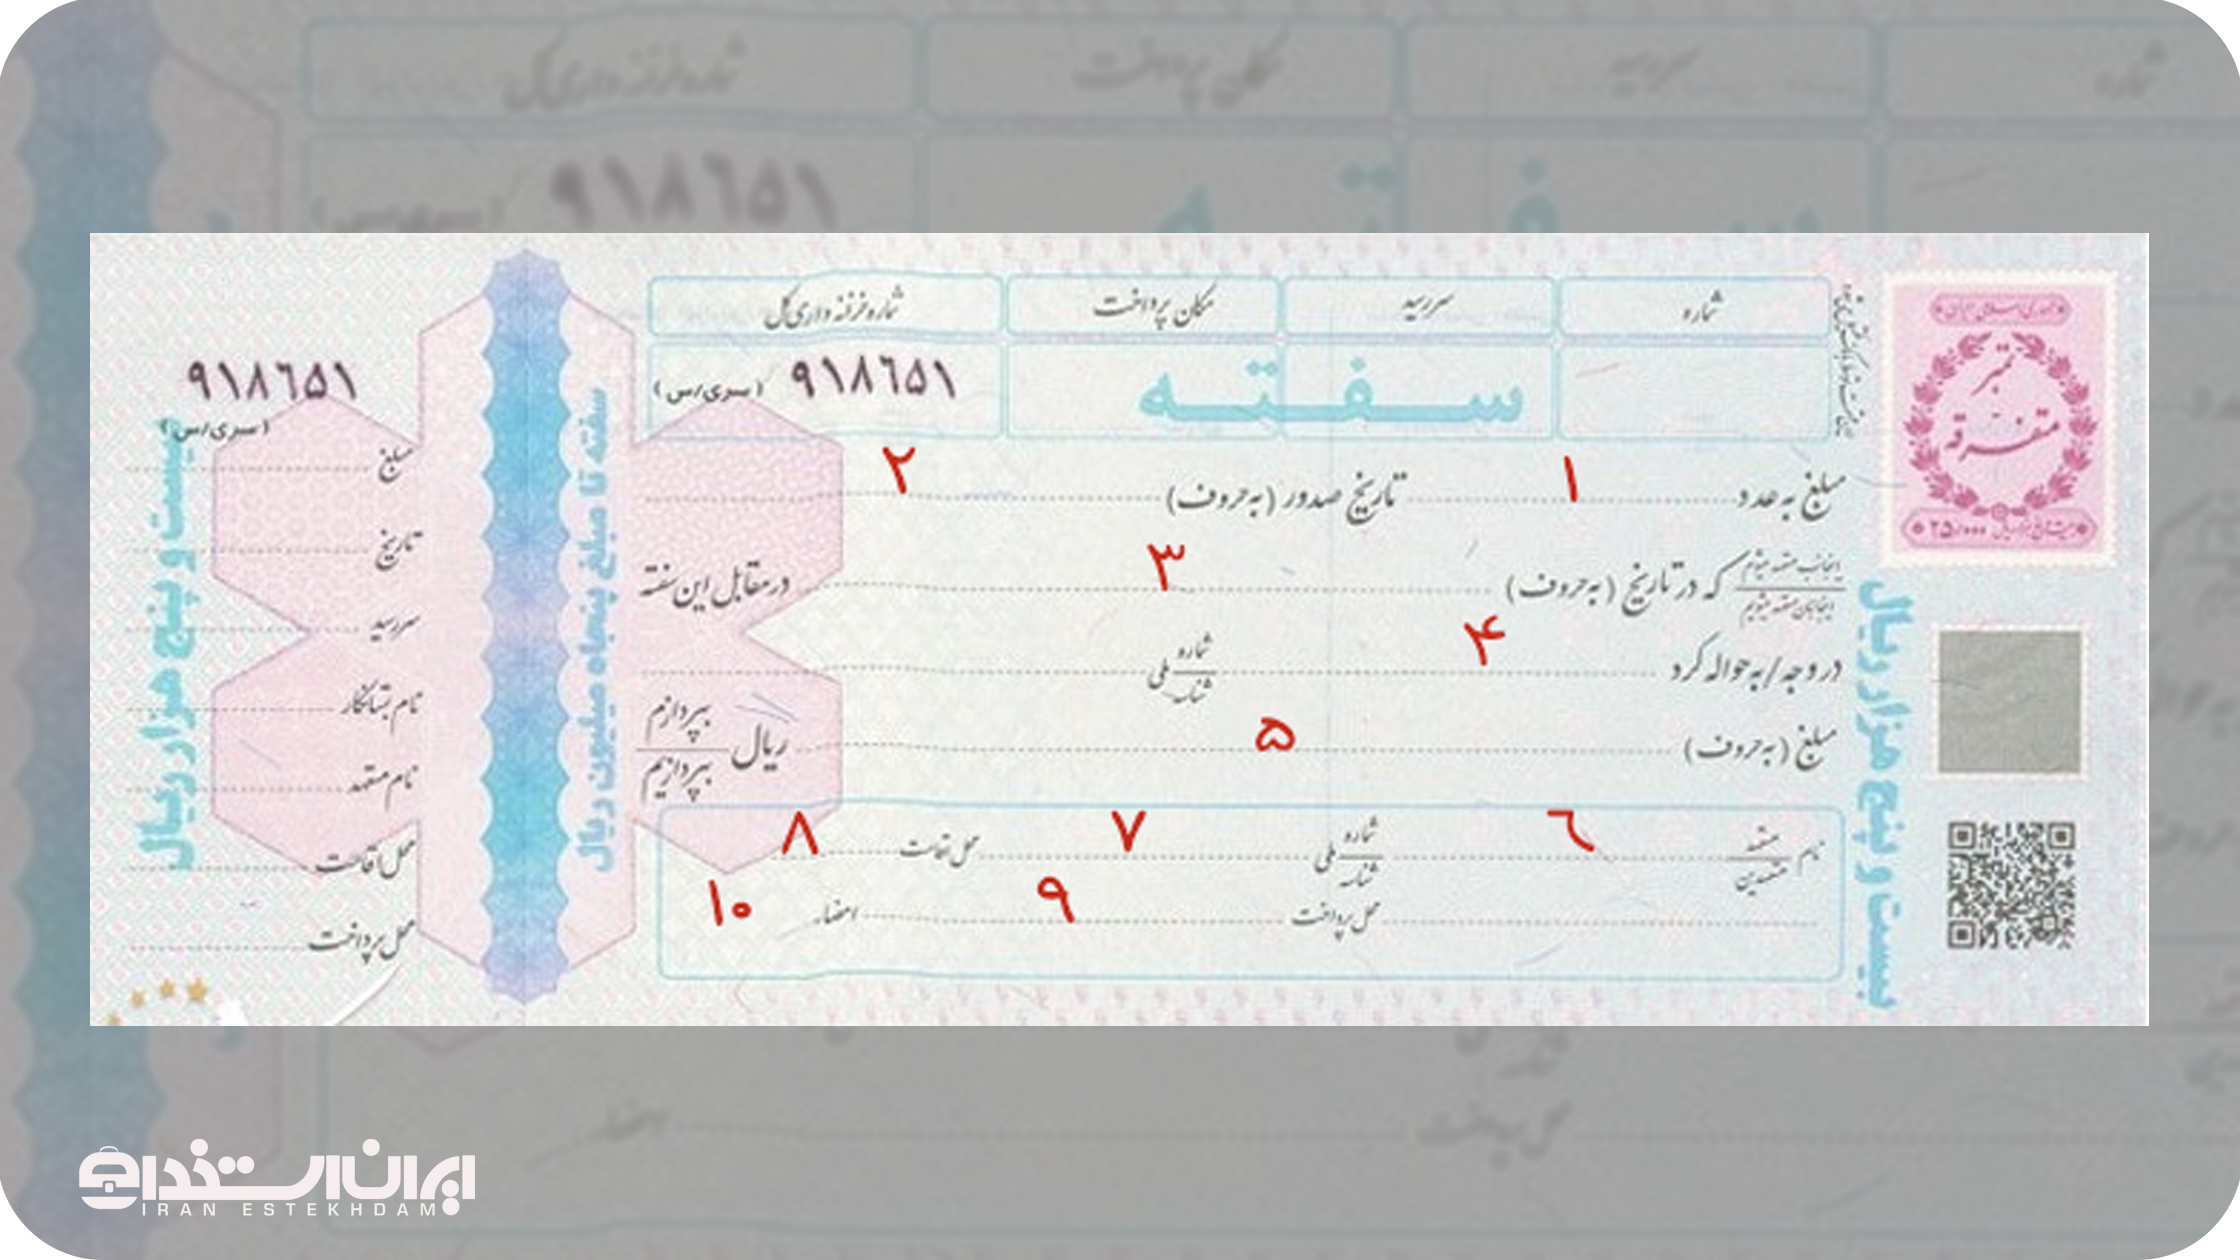 شماره
سررسید
مکان پرداخت
شماره خزانه‌داری کل
سفته
۹۱۸۶۵۱
(سری/س)
مبلغ به عدد ۱ تاریخ صدور (به حروف) ۲
اینجانب متعهد میشوم
اینجانبان متعهد میشویم
که در تاریخ (به حروف) ۳ در مقابل این سفته
در وجه/به حواله کرد ۴ شماره ملی
شناسه
مبلغ (به حروف) ۵ ریال بپردازم
بپردازیم
نام متعهد
متعهدین
۶ شماره ملی
شناسه
۷ محل اقامت ۸
محل پرداخت ۹ امضاء ۱۰
تمبر
متفرقه
بیست و پنج هزار ریال
سفته تا مبلغ پنجاه میلیون ریال
۹۱۸۶۵۱
(سری/س)
مبلغ
تاریخ
سررسید
نام بستانکار
نام متعهد
محل اقامت
محل پرداخت
بیست و پنج هزار ریال
شماره خزانه‌داری کل
مکان پرداخت
سررسید
شماره
۹۱۸۶۵۱
ایران استخدام
IRAN ESTEKHDAM